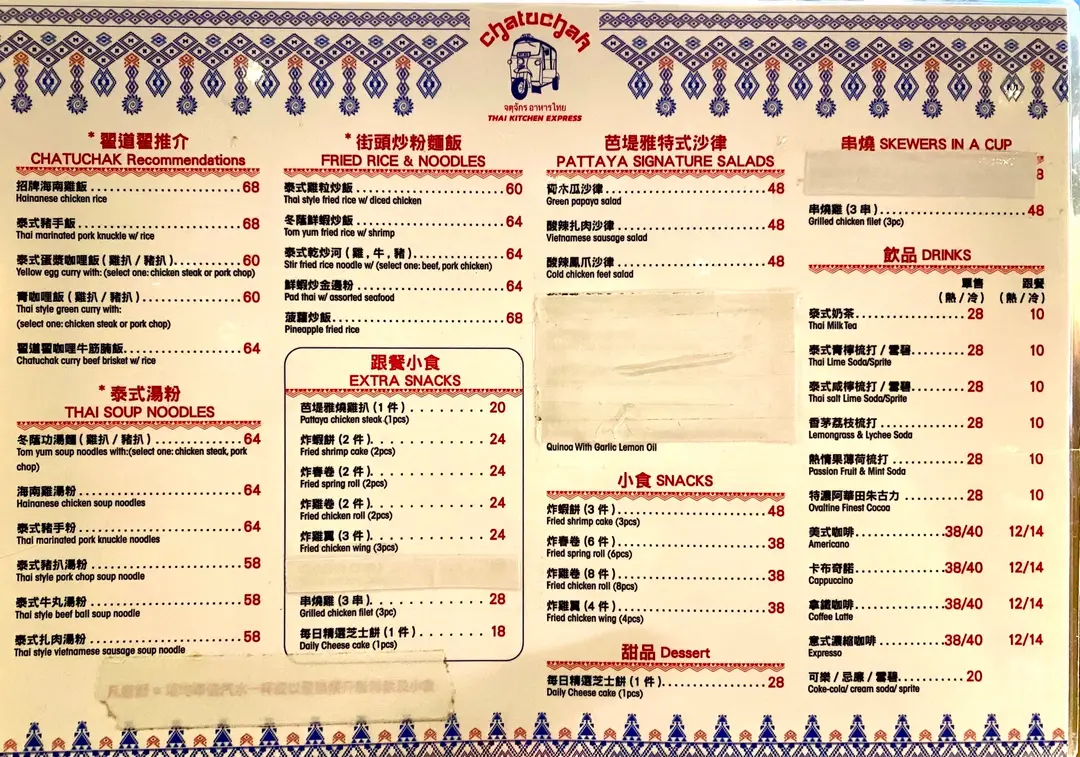 chatuchak
จตุจักร อาหารไทย
THAI KITCHEN EXPRESS
* 翟道翟推介
CHATUCHAK Recommendations
招牌海南雞飯 68
Hainanese chicken rice
泰式豬手飯 68
Thai marinated pork knuckle w/ rice
泰式蛋漿咖哩飯 (雞扒 / 豬扒) 60
Yellow egg curry with: (select one: chicken steak or pork chop)
青咖哩飯 (雞扒 / 豬扒) 60
Thai style green curry with:
(select one: chicken steak or pork chop)
翟道翟咖哩牛筋腩飯 64
Chatuchak curry beef brisket w/ rice
* 泰式湯粉
THAI SOUP NOODLES
冬蔭功湯麵 (雞扒 / 豬扒) 64
Tom yum soup noodles with:(select one: chicken steak, pork
chop)
海南雞湯粉 64
Hainanese chicken soup noodles
泰式豬手粉 64
Thai marinated pork knuckle noodles
泰式豬扒湯粉 58
Thai style pork chop soup noodle
泰式牛丸湯粉 58
Thai style beef ball soup noodle
泰式扎肉湯粉 58
Thai style vietnamese sausage soup noodle
* 街頭炒粉麵飯
FRIED RICE & NOODLES
泰式雞粒炒飯 60
Thai style fried rice w/ diced chicken
冬蔭鮮蝦炒飯 64
Tom yum fried rice w/ shrimp
泰式乾炒河 (雞, 牛, 豬) 64
Stir fried rice noodle w/ (select one: beef, pork chicken)
鮮蝦炒金邊粉 64
Pad thai w/ assorted seafood
菠蘿炒飯 68
Pineapple fried rice
跟餐小食
EXTRA SNACKS
芭堤雅燒雞扒 (1 件) 20
Pattaya chicken steak (1pcs)
炸蝦餅 (2 件) 24
Fried shrimp cake (2pcs)
炸春卷 (2 件) 24
Fried spring roll (2pcs)
炸雞卷 (2 件) 24
Fried chicken roll (2pcs)
炸雞翼 (3 件) 24
Fried chicken wing (3pcs)
串燒雞 (3 串) 28
Grilled chicken filet (3pc)
每日精選芝士餅 (1 件) 18
Daily Cheese cake (1pcs)
芭堤雅特式沙律
PATTAYA SIGNATURE SALADS
木瓜沙律 48
Green papaya salad
酸辣扎肉沙律 48
Vietnamese sausage salad
酸辣鳳爪沙律 48
Cold chicken feet salad
Quinoa With Garlic Lemon Oil
小食 SNACKS
炸蝦餅 (3 件) 48
Fried shrimp cake (3pcs)
炸春卷 (6 件) 38
Fried spring roll (6pcs)
炸雞卷 (8 件) 38
Fried chicken roll (8pcs)
炸雞翼 (4 件) 38
Fried chicken wing (4pcs)
甜品 Dessert
每日精選芝士餅 (1 件) 28
Daily Cheese cake (1pcs)
串燒 SKEWERS IN A CUP
8
串燒雞 (3 串) 48
Grilled chicken filet (3pc)
飲品 DRINKS
單售 跟餐
(熱 / 冷) (熱 / 冷)
泰式奶茶 28 10
Thai Milk Tea
泰式青檸梳打 / 雪碧 28 10
Thai Lime Soda/Sprite
泰式咸檸梳打 / 雪碧 28 10
Thai salt Lime Soda/Sprite
香茅荔枝梳打 28 10
Lemongrass & Lychee Soda
熱情果薄荷梳打 28 10
Passion Fruit & Mint Soda
特濃阿華田朱古力 28 10
Ovaltine Finest Cocoa
美式咖啡 38/40 12/14
Americano
卡布奇諾 38/40 12/14
Cappuccino
拿鐵咖啡 38/40 12/14
Coffee Latte
意式濃縮咖啡 38/40 12/14
Expresso
可樂 / 忌廉 / 雪碧 20
Coke-cola/ cream soda/ sprite